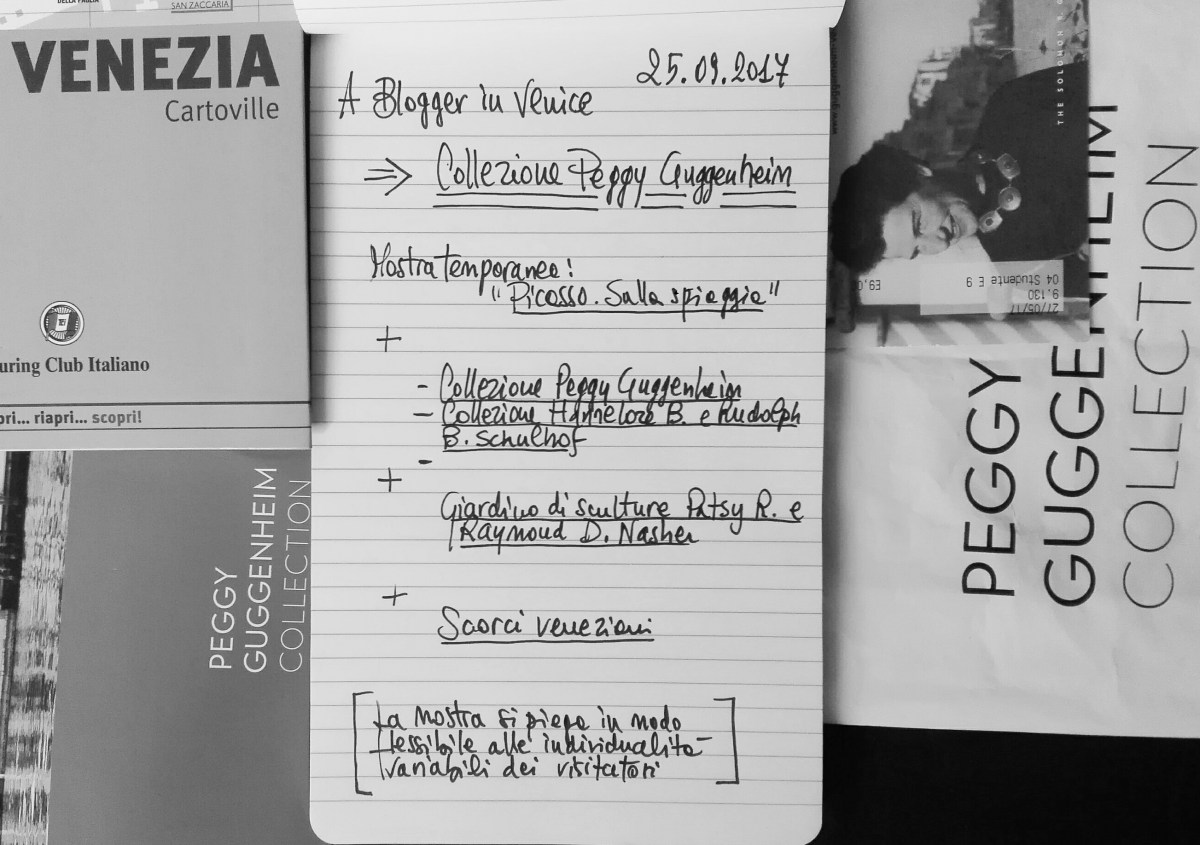 DELLA PAGLIA
SAN ZACCARIA
VENEZIA
Cartoville
uring Club Italiano
pri... riapri... scopri!
PEGGY
GUGGENHEIM
COLLECTION
25.09.2017
A Blogger in Venice
⇒ Collezione Peggy Guggenheim
Mostra temporanea:
"Picasso. Sulla spiaggia"
+
- Collezione Peggy Guggenheim
- Collezione Hannelore B. e Rudolph
B. Schulhof
+ -
Giardino di sculture Patsy R. e
Raymond D. Nasher
+
Scorci veneziani
[La mostra si piega in modo
flessibile alle individualità
variabili dei visitatori]
THE SOLOMON R. G
27/05/17
9.130
04 Studente E 9
E9,0
PEGGY
GUGGENHEIM
COLLECTION